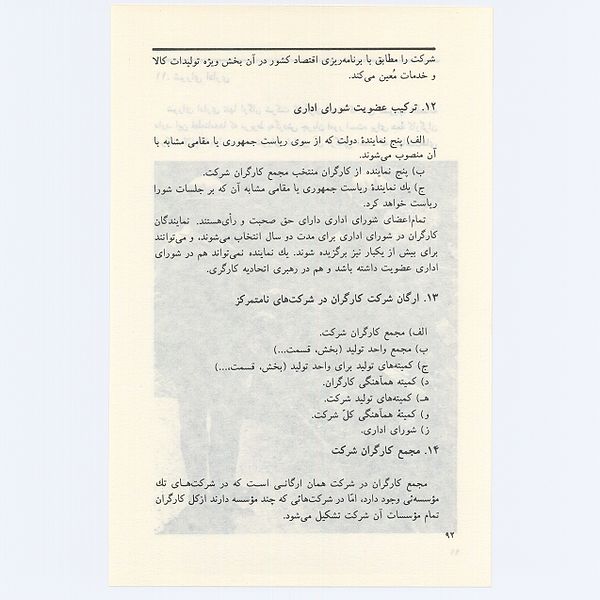 شرکت را مطابق با برنامه‌ریزی اقتصاد کشور در آن بخش ویژه تولیدات کالا
و خدمات مُعین می‌کند.
۱۲. ترکیب عضویت شورای اداری
الف) پنج نمایندهٔ دولت که از سوی ریاست جمهوری یا مقامی مشابه با
آن منصوب می‌شوند.
ب) پنج نماینده از کارگران منتخب مجمع کارگران شرکت.
ج) یك نمایندهٔ ریاست جمهوری یا مقامی مشابه آن که بر جلسات شورا
ریاست خواهد کرد.
تمام‌اعضای شورای اداری دارای حق صحبت و رأی‌هستند. نمایندگان
کارگران در شورای اداری برای مدت دو سال انتخاب می‌شوند، و می‌توانند
برای بیش از یکبار نیز برگزیده شوند. یك نماینده نمی‌تواند هم در شورای
اداری عضویت داشته باشد و هم در رهبری اتحادیه کارگری.
۱۳. ارگان شرکت کارگران در شرکت‌های نامتمرکز
الف) مجمع کارگران شرکت.
ب) مجمع واحد تولید (بخش، قسمت...)
ج) کمیته‌های تولید برای واحد تولید (بخش، قسمت،...)
د) کمیته همآهنگی کارگران.
هـ) کمیته‌های تولید شرکت.
و) کمیتهٔ همآهنگی کلّ شرکت.
ز) شورای اداری.
۱۴. مجمع کارگران شرکت
مجمع کارگران در شرکت همان ارگانی است که در شرکت‌های تك
مؤسسه‌ئی وجود دارد، امّا در شرکت‌هائی که چند مؤسسه دارند ازکل کارگران
تمام مؤسسات آن شرکت تشکیل می‌شود.
۹۲